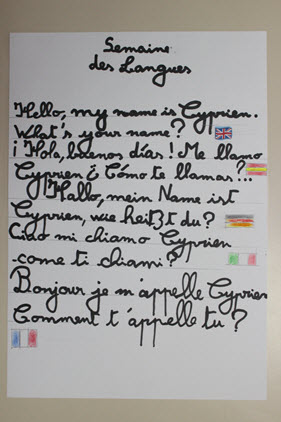 Semaine
des Langues
Hello, my name is Cyprien.
What's your name?
¡ Hola, buenos días! Me llamo
Cyprien ¿ Cómo te llamas?..
Hallo, mein Name ist
Cyprien, wie heißt du?
Ciao mi chiamo Cyprien
-come ti chiami?
Bonjour je m'appelle Cyprien
Comment t'appelle tu ?